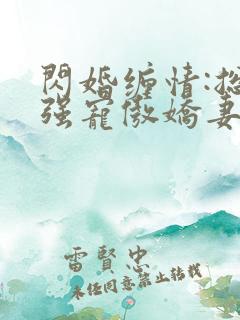 閃婚缠情:总
强寵傲嬌妻
雷賢忠
未经同意禁止转载